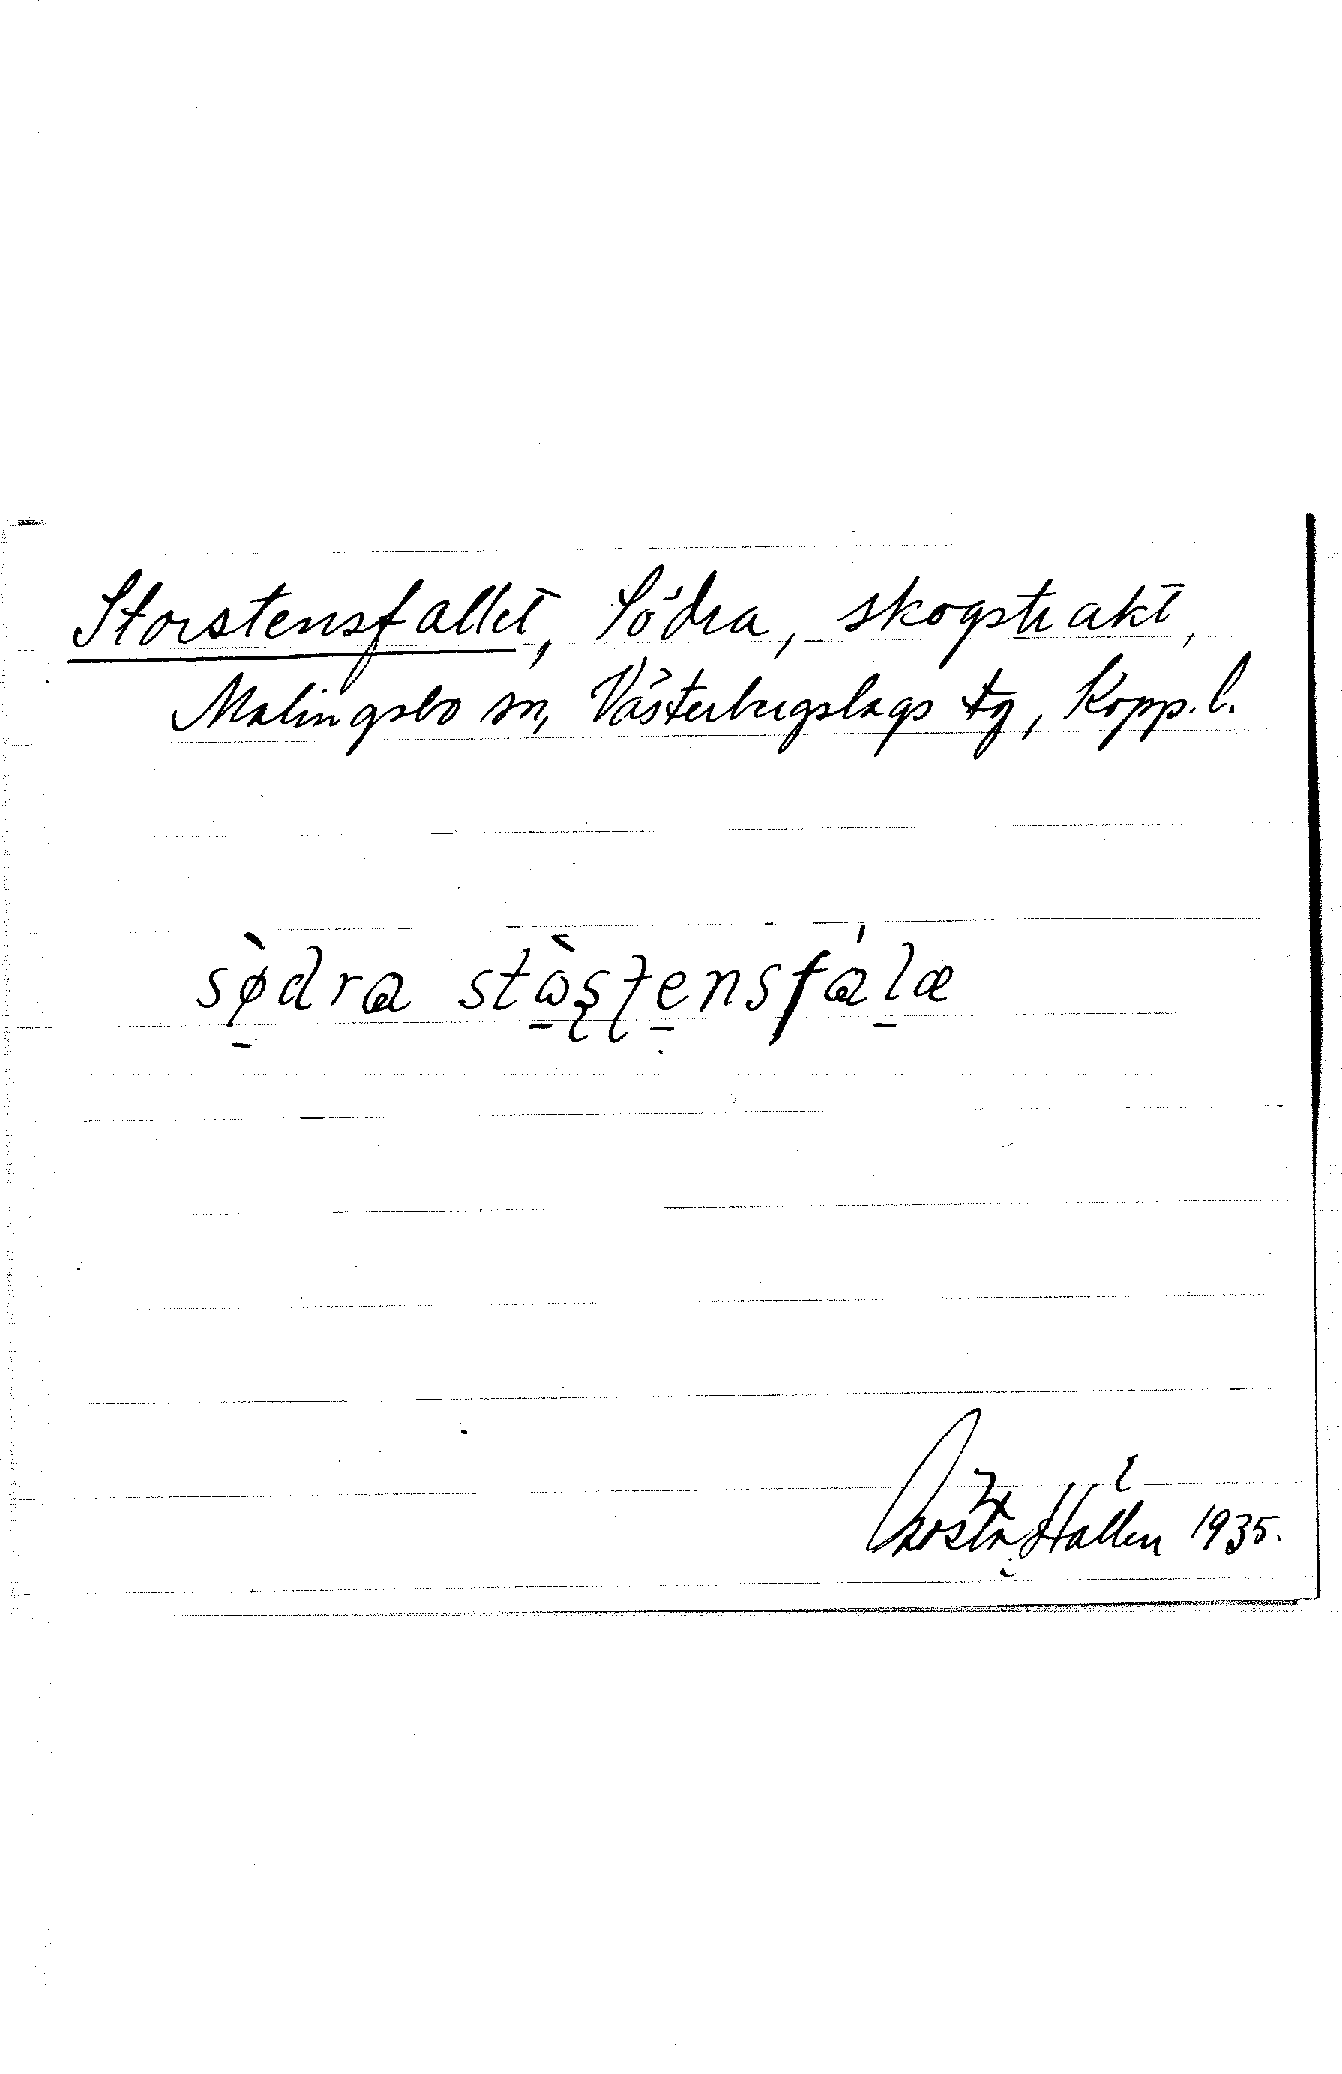 Storstensfallet, Södra, skogstrakt,
Malingsbo sn, Västerbergslags tg, Kopp. l.
sø̀dra stɷ̀ʂʈensfálæ
Gösta Hallén 1935.